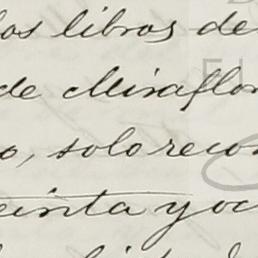 los libros de
de Miraflor
o, solo recon
einta y oc